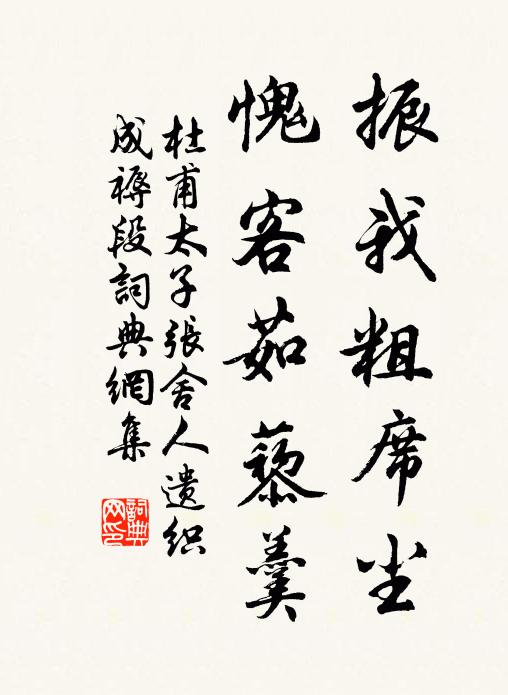 振我粗席尘
愧客茹藜羹
杜甫太子张舍人遗织
成褥段詞典網集
詞典
网印